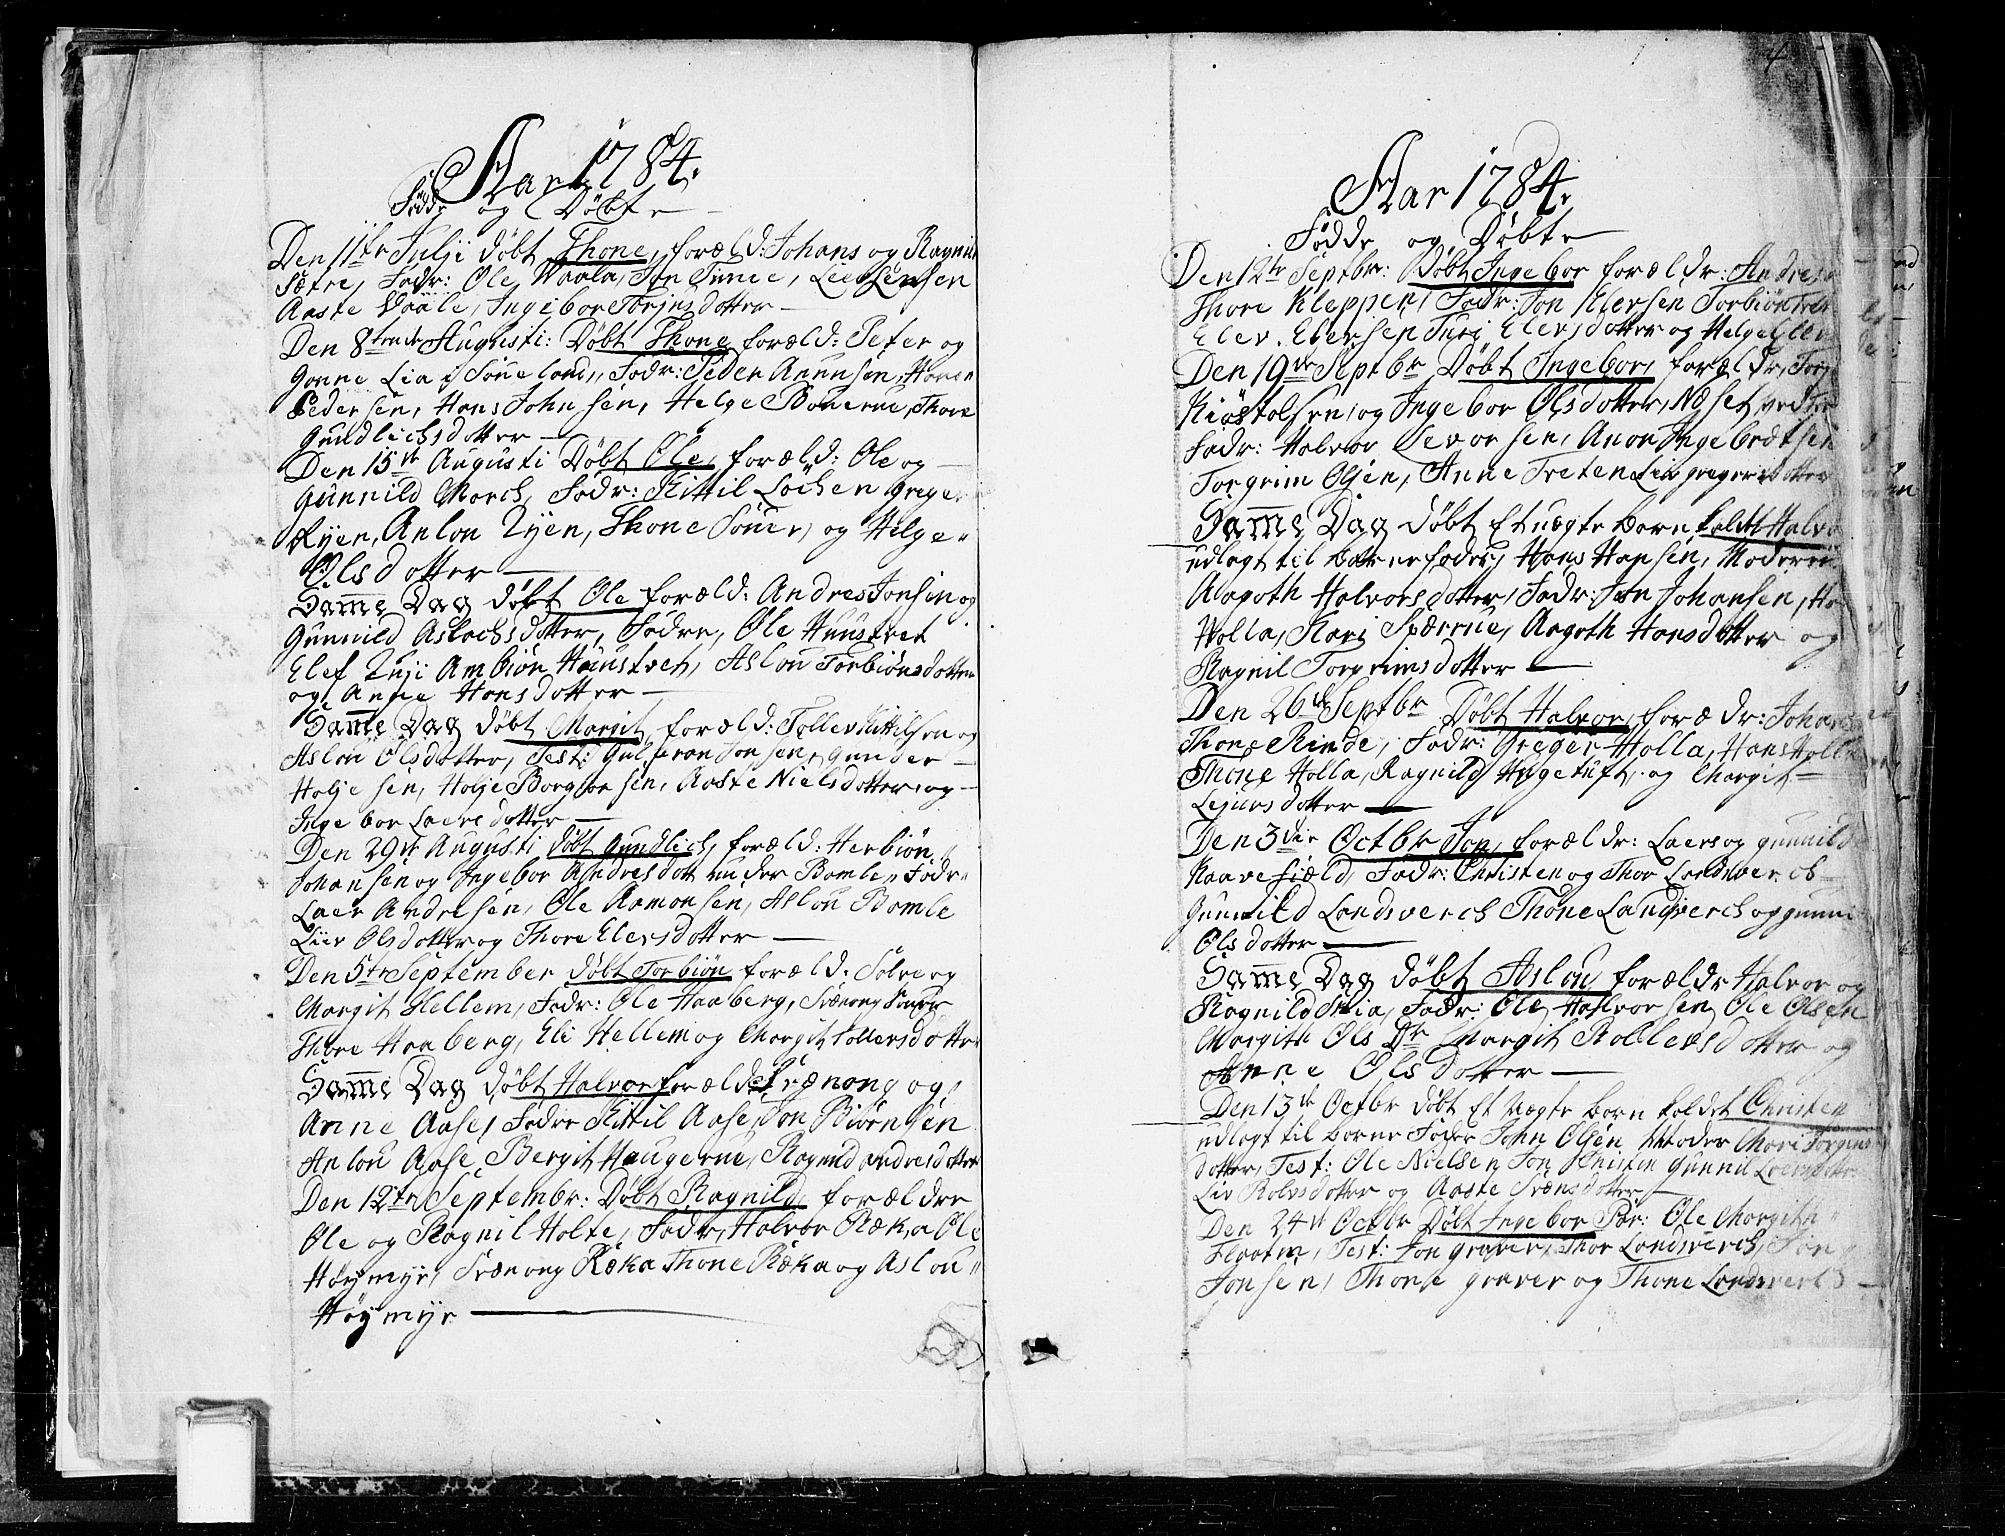 Aar 1784.
Födde og Döbte
Den 11te Julii döbt Thone, foræld: Johans og Ragnil
Sætre, Fadr: Ole Vaala, Jon Tinne, Lee Jensen
Aaste Vaale, Ingebor Torjusdotter
Den 8tende Augusti: Döbt Thone foræld: Peter og
Gonne Lia i Soueland, Fadr: Peder Anunsen, Haven
Pedersen, Hans Johnsen, Helge Bouerue, Thore
Gundlichsdotter
Den 15de Augusti Döbt Ole, foræld: Ole og
Gunnild Morch, Fadr: Kittil Lochen Greger
Ryen, Anlou Ryen, Thone Souer, og Helge
Olsdotter
Samme Dag döbt Ole foræld: Andres Jonsen og
Gunnild Aslachsdotter, Fadre, Ole Huustvet
Elef Ambiör Haustvet, Aslou Torbiönsdotter
og Anne Hansdotter
Samme Dag döbt Margit, foræld: Tollev Kittilsen og
Aslou Olsdotter, Test: Gulleran Jonsen, Gunder
Holje sen, Holje Borgorsen, Aaste Nielsdotter, og
Ingebor Laersdotter
Den 29de Augusti döbt Gundlich, foræld: Herbiön
Johansen og Ingebor Andresdott under Bomle, Fadr
Laer Andresen, Ole Aamonsen, Aslou Bomle
Liv Olsdotter og Thore Elevsdotter
Den 5te September döbt Torbiön foræld: Solve og
Margit Hellem, Fadr: Ole Haaberg, Svænong
Thore Haaberg, Eli Hellem og Margit Tollersdotter
Samme Dag döbt Halvor foræld: Svænong og
Anne Aase, Fadre Kittil Aase, Jon Biörnsen
Anlou Aase, Bergit Haugerue, Ragnild Andresdotter
Den 12te Septembr: Döbt Ragnild, forældre
Ole og Ragnil Holte, Fadr, Halvor Ræka, Ole
Höymyr, Svænong Ræka Thone Ræka og Aslou
Höymyr
4
Aar 1784.
Födde og Döbte
Den 12te Septbr: Döbt Ingebor forældr: Andres
Thore Kleppen, Fadr: Jon Elersen Torbiön
Elev. Elersen Turi Elersdotter og Helge
Den 19de Septbr Döbt Ingebor, forældr,
Kiöstolsen, og Ingebor Olsdotter, Næset
Fadr: Halvor Levorsen, Anon Ingebretsen
Torgrim Olsen, Anne Treten Liv gregersdotter
Samme Dag döbt Et uægte Born kaldet Halvo
udlagt til barnefader, Hans Hansen, Moderen
Aagoth Halvorsdotter, Fadr: Jon Johansen,
Holla, Kari Sværrue, Aagoth Hansdotter og
Ragnil Torgrimsdotter
Den 26de Septbr Döbt Halvor, forældr: Johans
Thone Rinde, Fadr: Greger Holla, Hans Holla
Thone Holla, Ragnild Hegetuft, og Margit
Lejursdotter
Den 3die Octbr Jon, forældr: Laers og gunnild
Kaavefiæld, Fadr: Christen og Thor Landsverch
Gunnild Landsverch Thone Landsverch og gunni
Olsdotter
Samme Dag döbt Aslou forældr Halvor og
Ragnild Thia, Fadr: Ole Halvorsen, Ole Olsen
Margith Ols Dtr Margit Rollevsdotter og
Anne Olsdotter
Den 13de Octbr döbt Et Uægte born kaldet Christen
udlagt til barne Fader John Olsen Moder Mari
dotter, Test: Ole Nielsen Jon Gunnil
Liv Rolvsdotter og Aaste Svænsdotter
Den 24de Octbr Döbt Ingebor Par: Ole Margith
Flaatin, Test: Jon graver, Thor Landsverch, Jon
Jonsen, Thone graver og Thone Landsverch